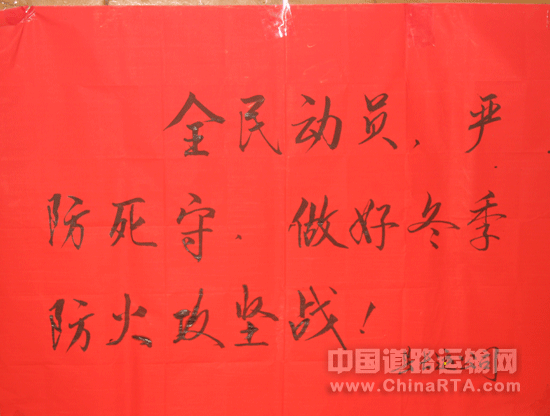 全民动员、严
防死守.做好冬季
防火攻坚战!
中国道路运输网
www.ChinaRTA.com